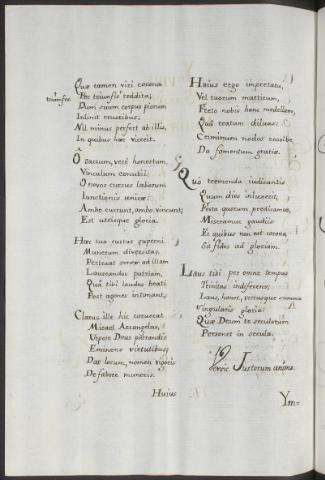 Quæ tamen viri corona
triumfro
Per triumfrō reddita;
Dum suum corpus pionum
Inlinit cruoribus;
Nil minus perfert ab illis,
In quibus hæc vicerit.
O sacrum, vere honestum
Vinculum conubii:
O novos cursus laborum
Iunctionis unicæ:
Ambo currunt, ambo vincunt;
Est utrisque gloria.
Hæc tua custos superni
Munerum diversitas,
Pertrahat ad illam
Laureandos patriam,
Quâ tibi laudes beati
Post agones intonant.
Clarus ille hic coruscat
Micael Arcangelus,
Utpote Deus patrandis
Eminens virtutibus;
Dat locum, nomen vigoris
De labore muneris.
Huius
Huius ergo impetratu,
Vel tuorum martirum,
Præsto nobis hanc medellam,
Quâ reatum diluas:
Criminum nodos resolve
Da fomentum gratiæ.
Quo tremenda iudicantis
Quum dies inluxerit,
Festa quorum predicamus,
Misceamur gaudiis
Et quibus non est corona,
Sit fides ad gloriam.
Laus tibi per omne tempus
Trinitas indifferens;
Laus, honor, virtusque summa
Singularis gloria:
Quæ Deum te seculorum
Personet in secula.
℣ersic Justorum animæ.
Ym=